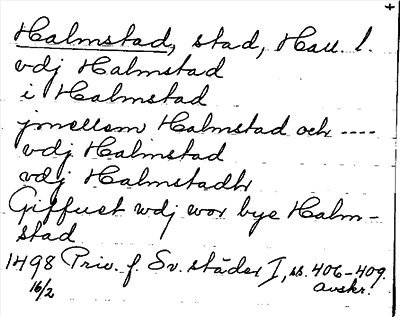 Halmstad, stad, Hall. l.
vdj Halmstad
i Halmstad
jmellom Halmstad och ----
vdj Halmstad
vdj Halmstadh
Giffuet vdj vor bye Halm-
stad
1498 Priv. f. Sv. städer I, ss. 406-409
16/2 avskr.